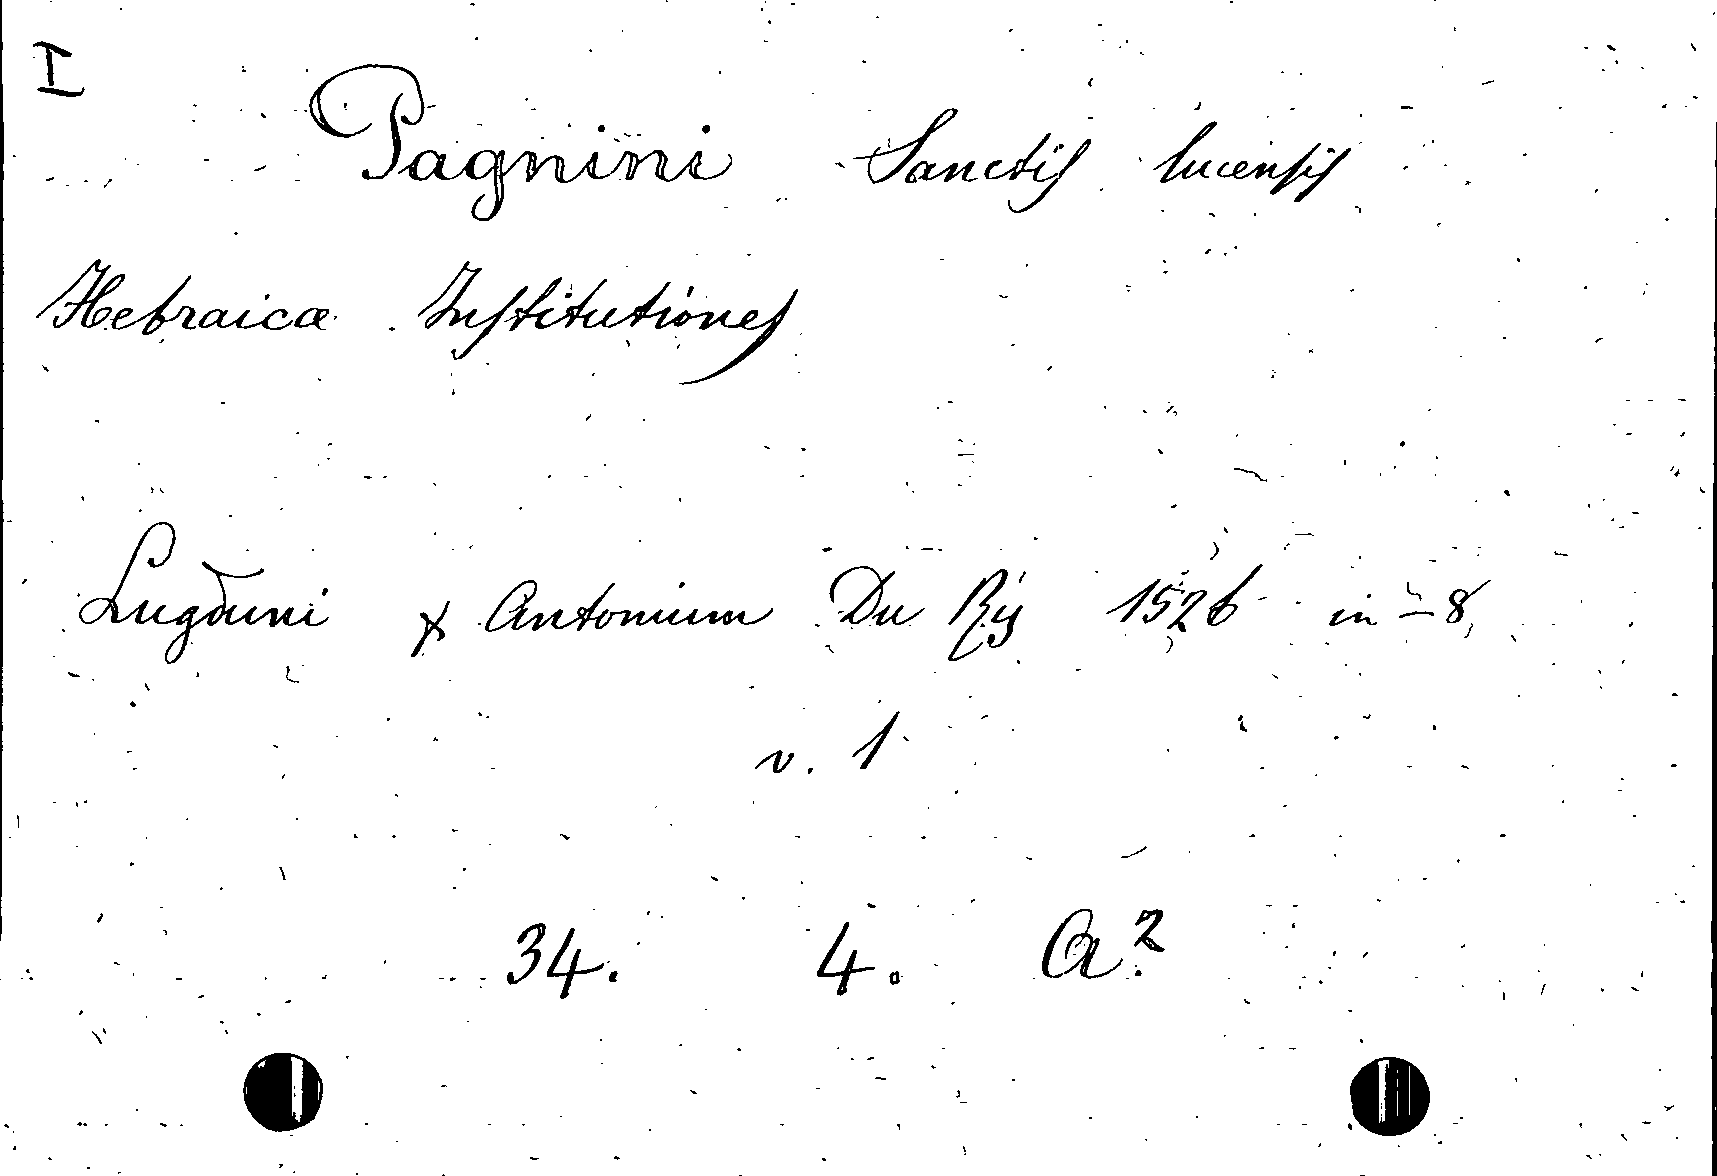 I
Pagnini Sanctis lucensis
Hebraicæ Institutiones
Lugduni x Antonium Du Ry 1526 in-8
v. 1
34. 4. A.2